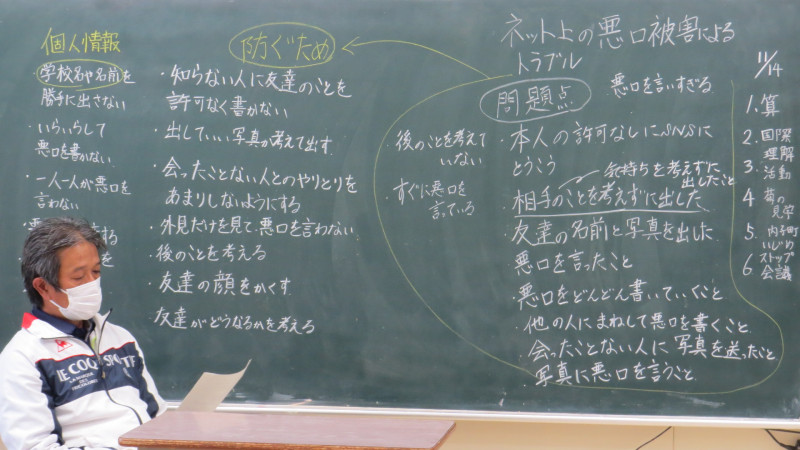 ネット上の悪口被害による
トラブル
問題点
悪口を言いすぎる
・本人の許可なしにSNSに
とうこう
気持ちを考えずに
出したこと
・相手のことを考えずに出した
・友達の名前と写真を出した
悪口を言ったこと
・悪口をどんどん書いていくこと
他の人にまねして悪口を書くこと
・会ったことない人に写真を送ったこと
・写真に悪口を言うこと
・後のことを考えて
いない
・すぐに悪口を
言っている
防ぐため
・知らない人に友達のことを
許可なく書かない
・出していい写真か考えて出す
・会ったことない人とのやりとりを
あまりしないようにする
・外見だけを見て悪口を言わない
・後のことを考える
・友達の顔をかくす
友達がどうなるかを考える
個人情報
・学校名や名前を
勝手に出さない
・いらいらして
悪口を書かない
・一人一人が悪口を
言わない
する
を
11/14
1. 算
2. 国際
理解
3. 活動
4 菊の
見学
5. 内子町
いじめ
ストップ
6 会議
LE COQ SPORTIF